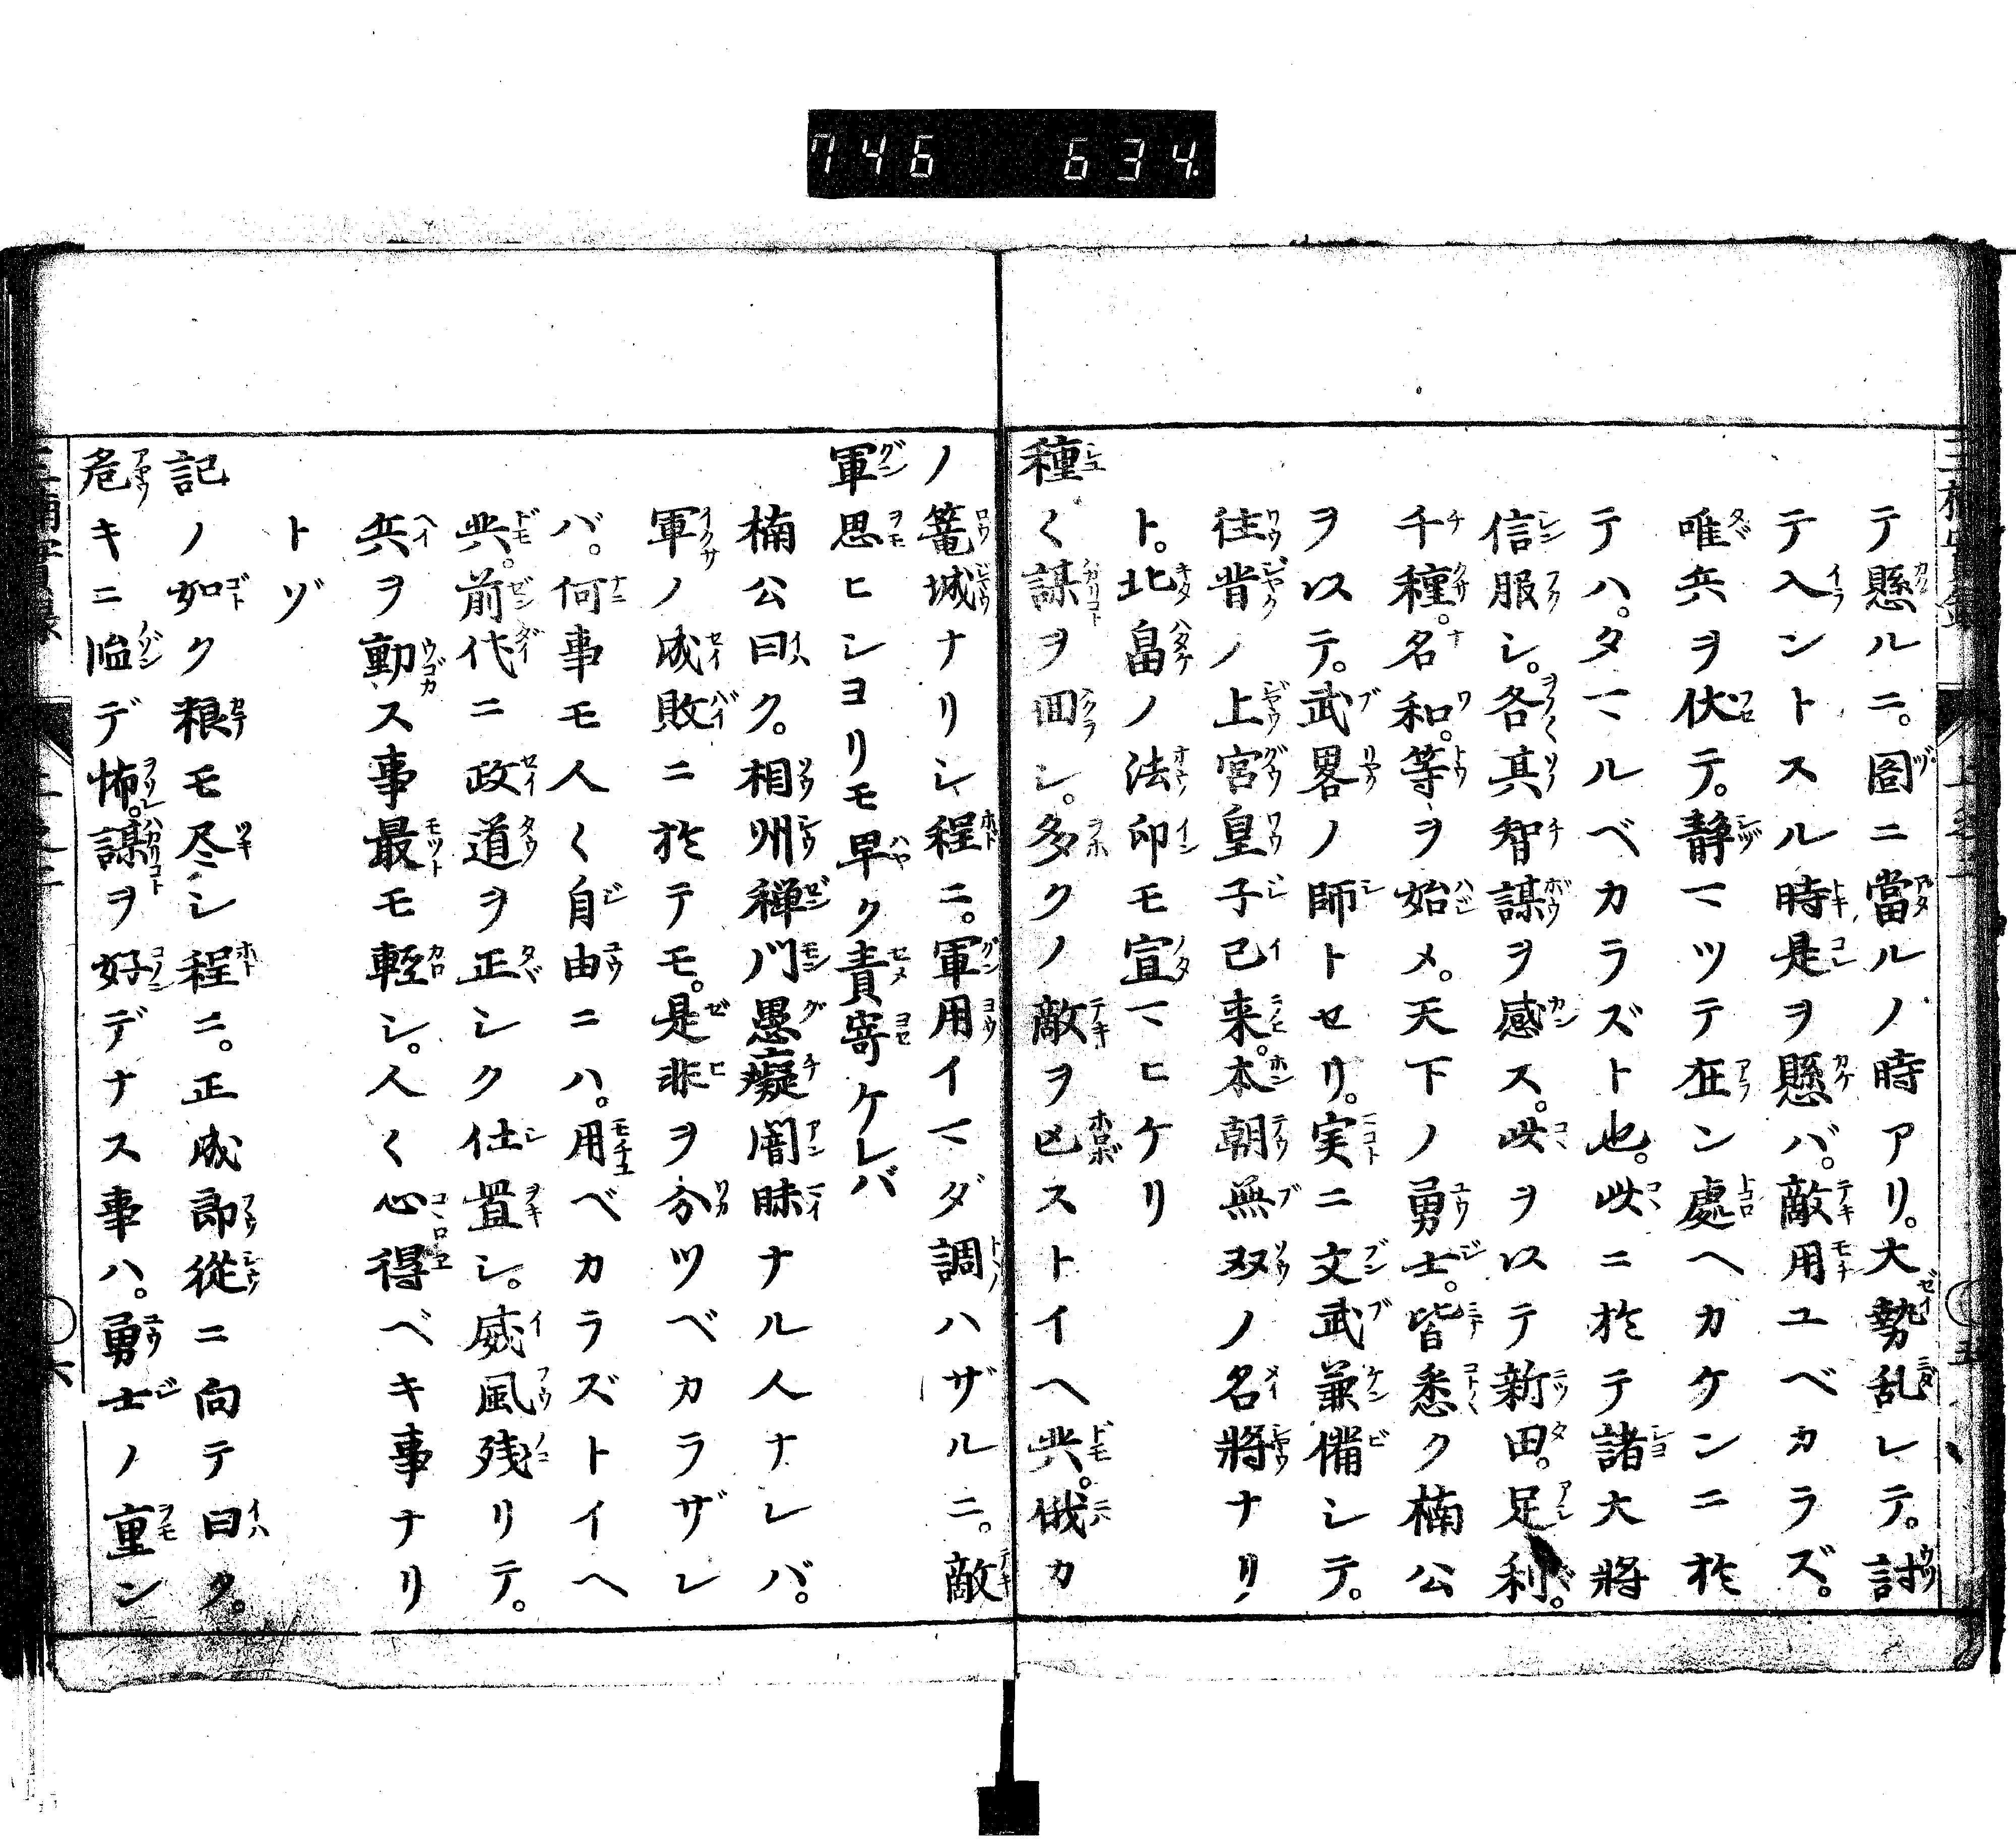 746 634.
テ懸ルニ。圖ニ當ルノ時アリ。大勢乱レテ。討
テ入ントスル時是ヲ懸バ。敵用ユベカラズ。
唯兵ヲ伏テ。静マツテ在ン處ヘカケンニ於
テハ。タマルベカラズト也。此ニ於テ諸大將
信服シ。各其智謀ヲ感ス。此ヲ以テ新田。足利。
千種。名和。等ヲ始メ。天下ノ勇士。皆悉ク楠公
ヲ以テ。武畧ノ師トセリ。実ニ文武兼備シテ。
往昔ノ上宮皇子已来。本朝無双ノ名將ナリ
ト。北畠ノ法印モ宣マヒケリ
種〱謀ヲ回シ。多クノ敵ヲ亡ストイヘ共。俄カ
ノ篭城ナリシ程ニ。軍用イマダ調ハザルニ。敵
軍思ヒシヨリモ早ク責寄ケレバ
楠公曰ク。相州禅門愚癡闇昧ナル人ナレバ。
軍ノ成敗ニ於テモ。是非ヲ分ツベカラザレ
バ。何事モ人〱自由ニハ。用ベカラズトイヘ
共。前代ニ政道ヲ正シク仕置シ。威風残リテ。
兵ヲ動ス事最モ軽シ。人〱心得ベキ事ナリ
トゾ
記ノ如ク粮モ尽シ程ニ。正成郎從ニ向テ曰ク。
危キニ臨デ怖。謀ヲ好デナス事ハ。勇士ノ重ン
五
六